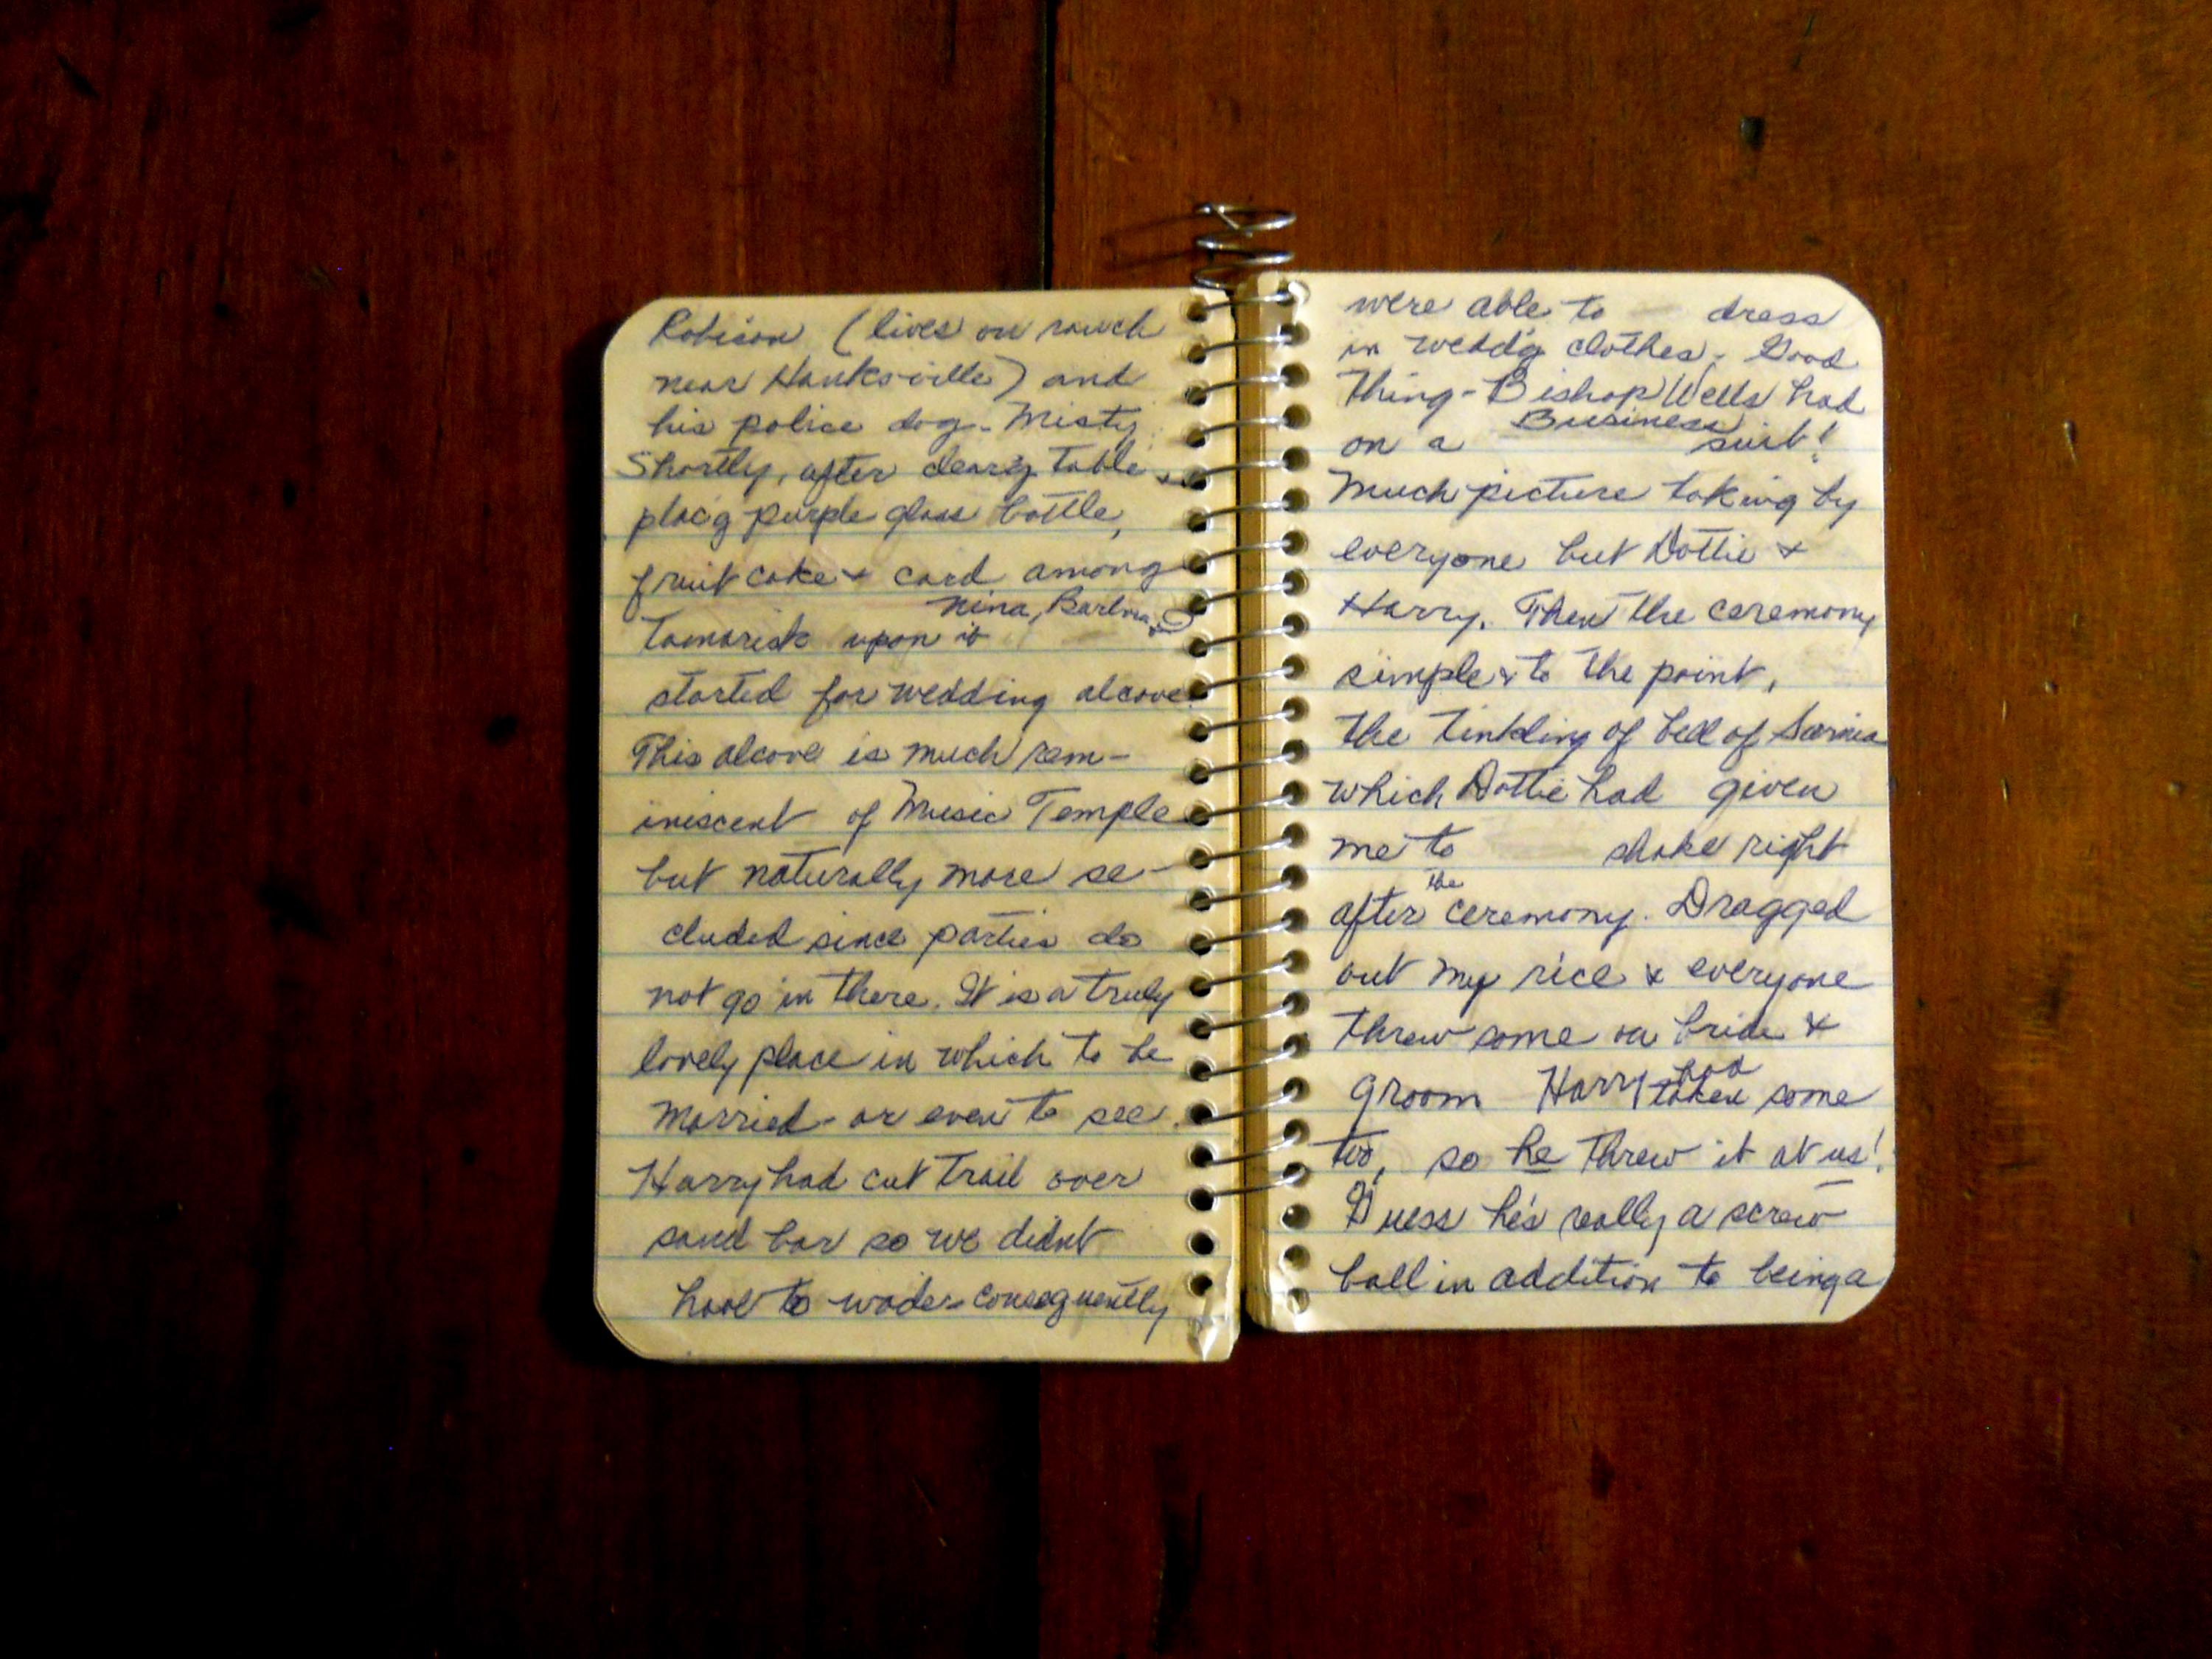 Robison (lives on ranch
near Hanksville) and
his police dog - Misty.
Shortly, after clear'g table &
plac'g purple glass bottle,
fruit cake & card among
Nina, Barbara &
Tamarisk upon it
started for wedding alcove.
This alcove is much rem-
iniscent of Music Temple
but naturally more se-
cluded since parties do
not go in there. It is a truly
lovely place in which to be
married - or even to see.
Harry had cut trail over
sand bar so we didnt
have to wade - consequently
were able to dress
in wedd'g clothes. Good
thing - Bishop Wells had
Business
on a suit!
Much picture taking by
everyone but Dottie &
Harry. Then the ceremony
simple & to the point,
the tinkling of bell of Sarnia
which Dottie had given
me to shake right
the
after ceremony. Dragged
out my rice & everyone
threw some on bride &
had
groom Harry taken some
too, so he threw it at us!
Guess he's really a screw
ball in addition to being a